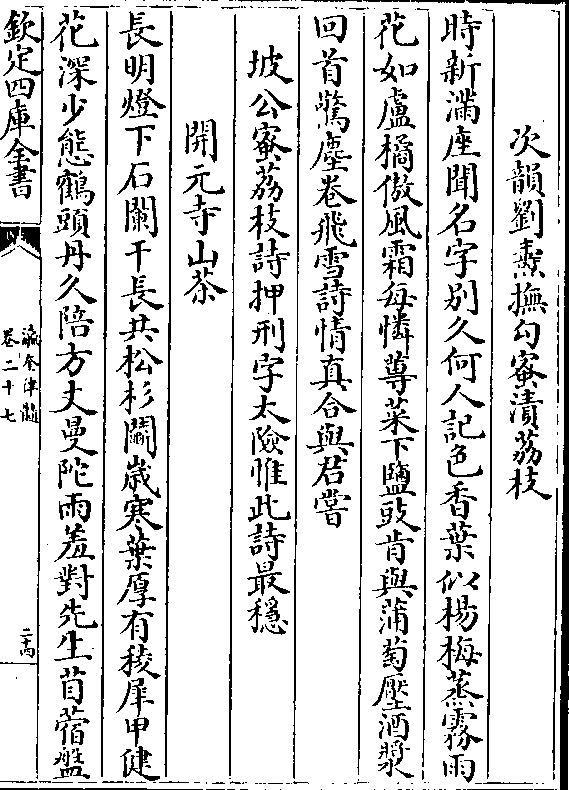 次韻劉燾撫勾蜜漬荔枝
時新滿座聞名字别久何人記色香葉似楊梅蒸霧雨
花如盧橘傲風霜每憐蓴菜下鹽豉肯與蒲萄壓酒漿
回首驚塵卷飛雪詩情真合與君嘗
坡公蜜荔枝詩押刑字太險惟此詩最穩
開元寺山茶
長明燈下石闌干長共松杉鬭歲寒葉厚有稜犀甲健
花深少態鶴頭丹久陪方丈曼陀雨羞對先生苜蓿盤
欽定四庫全書
瀛奎律髓
卷二十七
二十四